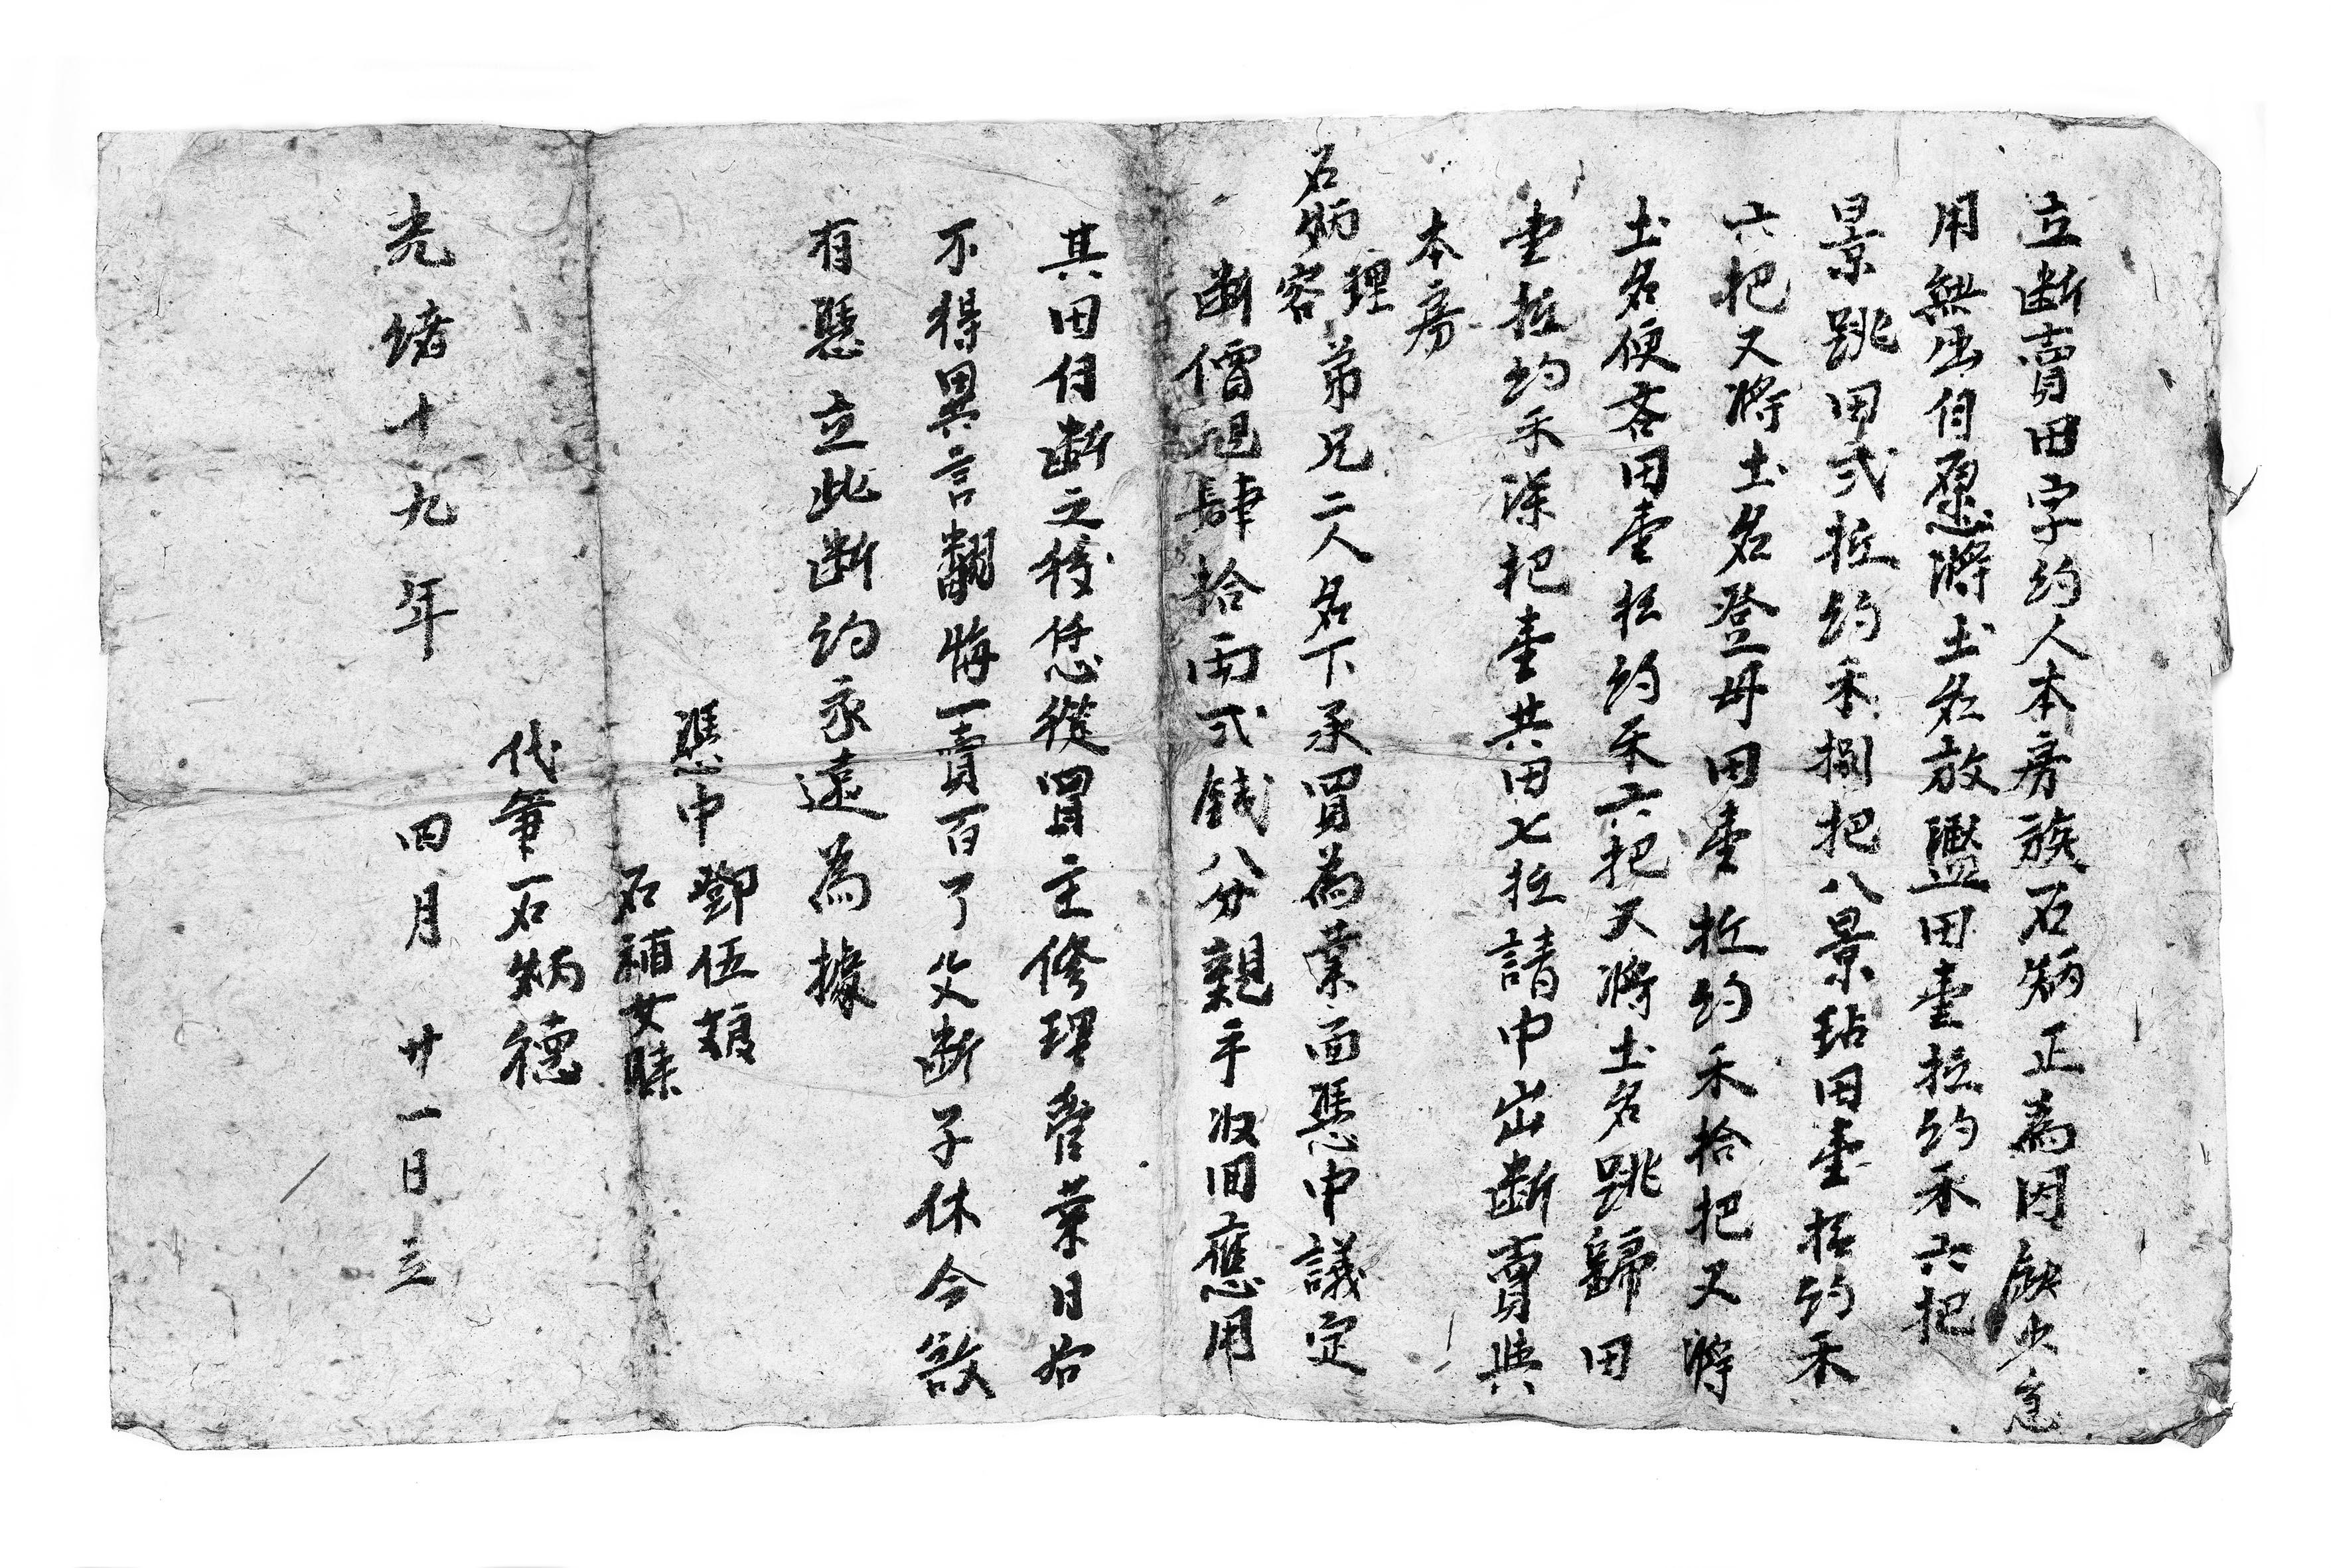 立断賣田字約人本房族石炳正為因缺少急
用無出自愿將土名放鑑田壹坵約禾六把
景跳田弍坵約禾捌把八景玷田壹坵約禾
六把又將土名登毋田壹坵約禾拾把又將
土名便吝田壹坵約禾六把又將土名跳歸田
壹坵約禾深把壹共田七坵請中出断賣與
本房
石炳理
容弟兄二人名下承買為業面憑中議定
断價肆拾両弍錢八分親手收囬應用
其田自断之後恁從買主修理管業日後
不得異言翻悔一賣百了父断子休今欲
有憑立此断約永遠為據
憑中鄧伍
石補女
代筆石炳德
光绪十九年四月廿一日立